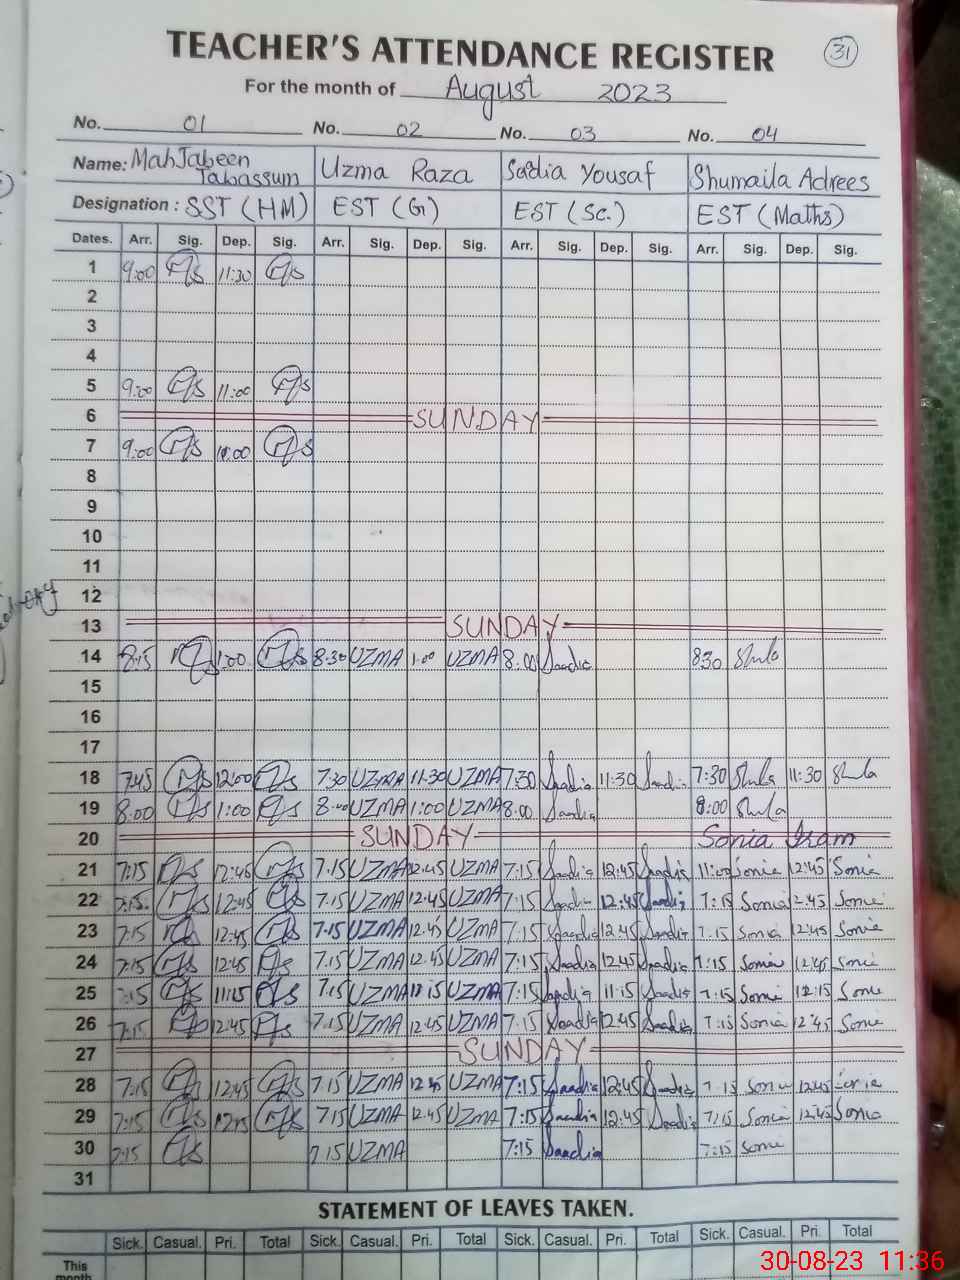 TEACHER'S ATTENDANCE REGISTER 31
For the month of August 2023
No. 01 No. 02 No. 03 No. 04
Name: MahJabeen Tabassum Uzma Raza Sadia Yousaf Shumaila Adrees
Designation : SST (HM) EST (G) EST (Sc.) EST (Maths)
Dates. Arr. Sig. Dep. Sig. Arr. Sig. Dep. Sig. Arr. Sig. Dep. Sig. Arr. Sig. Dep. Sig.
1 9:00 11:30
2
3
4
5 9:00 11:00
6 SUNDAY
7 9:00
8
9
10
11
12
13 SUNDAY
14 8:15 1:00 8:30 UZMA 1:00 UZMA 8:00 Saadia 830
15
16
17
18 7:45 12:00 7:30 UZMA 11:30 UZMA 7:30 Saadia 11:30 Saadia 7:30 11:30
19 8:00 1:00 8:00 UZMA 1:00 UZMA 8:00 Saadia 8:00
20 SUNDAY Sonia Iram
21 7:15 12:45 7.15 UZMA 12:45 UZMA 7:15 Saadia 12:45 Saadia 11:00 Sonia 12:45 Sonia
22 7:15 12:45 7.15 UZMA 12:45 UZMA 7:15 Saadia 12:45 Saadia 7:15 Sonia 2:45 Sonia
23 7:15 12:45 7.15 UZMA 12:45 UZMA 7:15 Saadia 12:45 Saadia 7:15 Sonia 12:45 Sonia
24 7:15 12:45 7.15 UZMA 12:45 UZMA 7:15 Saadia 12:45 Saadia 7:15 Sonia 12:45 Sonia
25 7:15 11:15 7.15 UZMA 11:15 UZMA 7:15 Saadia 11:15 Saadia 7:15 Sonia 12:15 Sonia
26 7:15 12:45 7.15 UZMA 12:45 UZMA 7:15 Saadia 12:45 Saadia 7:15 Sonia 12:45 Sonia
27 SUNDAY
28 7:15 12:45 7.15 UZMA 12:45 UZMA 7:15 Saadia 12:45 Saadia 7:15 Sonia 12:45 Sonia
29 7:15 7.15 UZMA 12.45 UZMA 7:15 Saadia 12:45 Saadia 7:15 Sonia 12:45 Sonia
30 7:15 7.15 UZMA 7:15 Saadia 7:15 Sonia
31
STATEMENT OF LEAVES TAKEN.
Sick. Casual. Pri. Total Sick. Casual. Pri. Total Sick. Casual. Pri. Total Sick. Casual. Pri. Total
This month
30-08-23 11:36